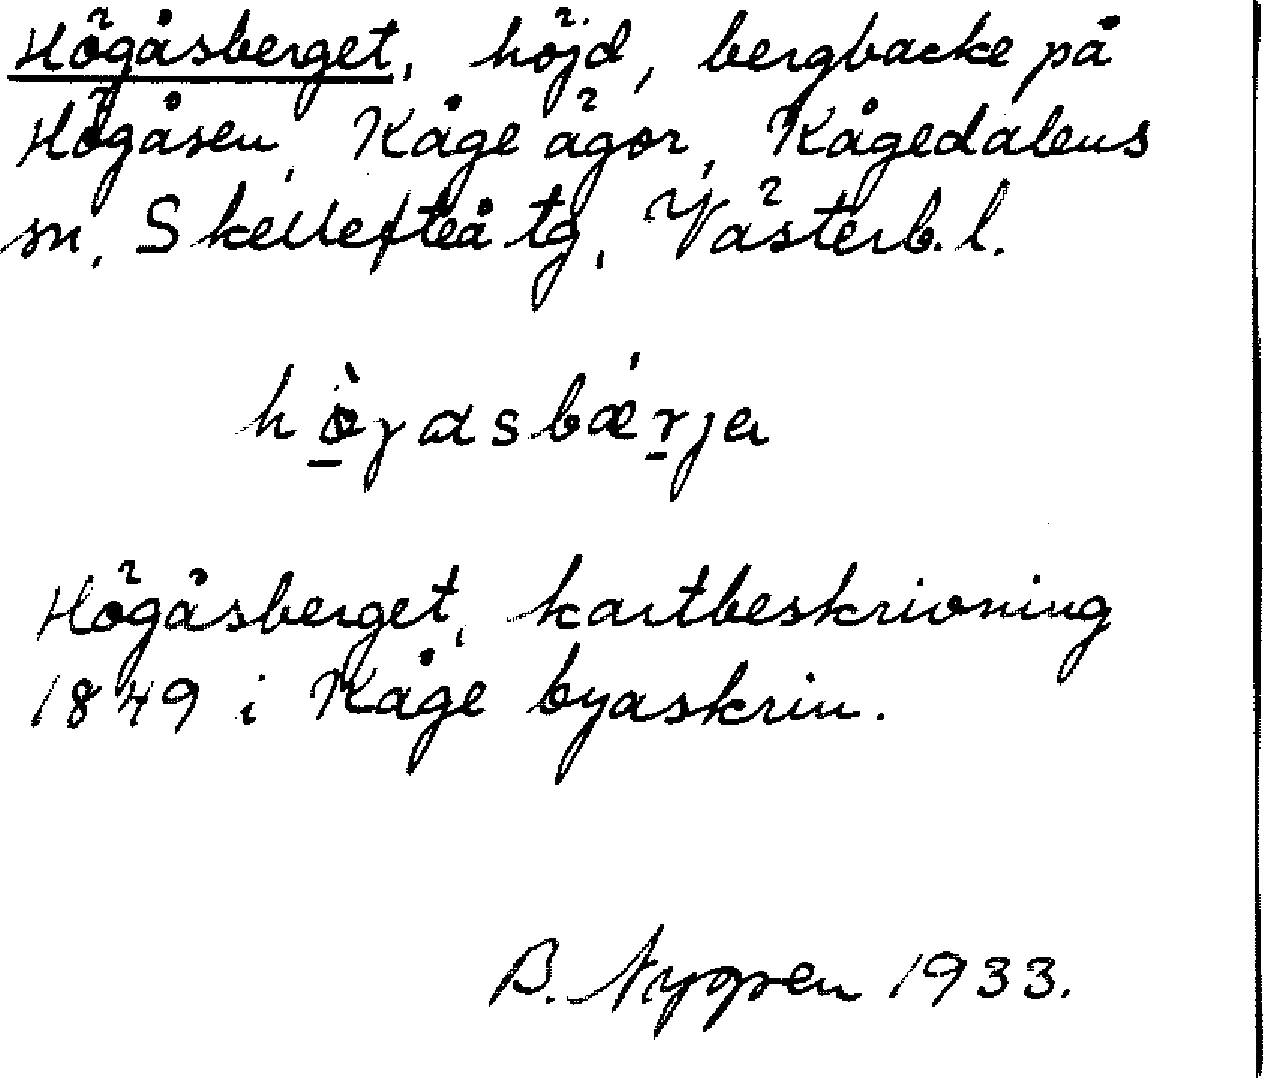 Högåsberget, höjd, bergbacke på
Högåsen, Kåge ägor, Kågedalens
sn, Skellefteå tg, Västerb. l.
hö̀γasbǽrja
Högåsberget, kartbeskrivning
1849 i Kåge byaskrin.
B. Nygren 1933.